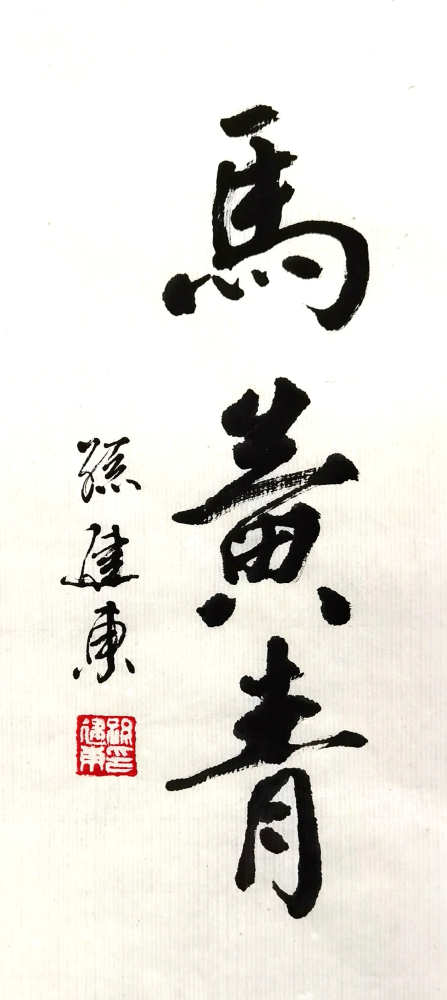 馬黃青
孫建東
孫建東印